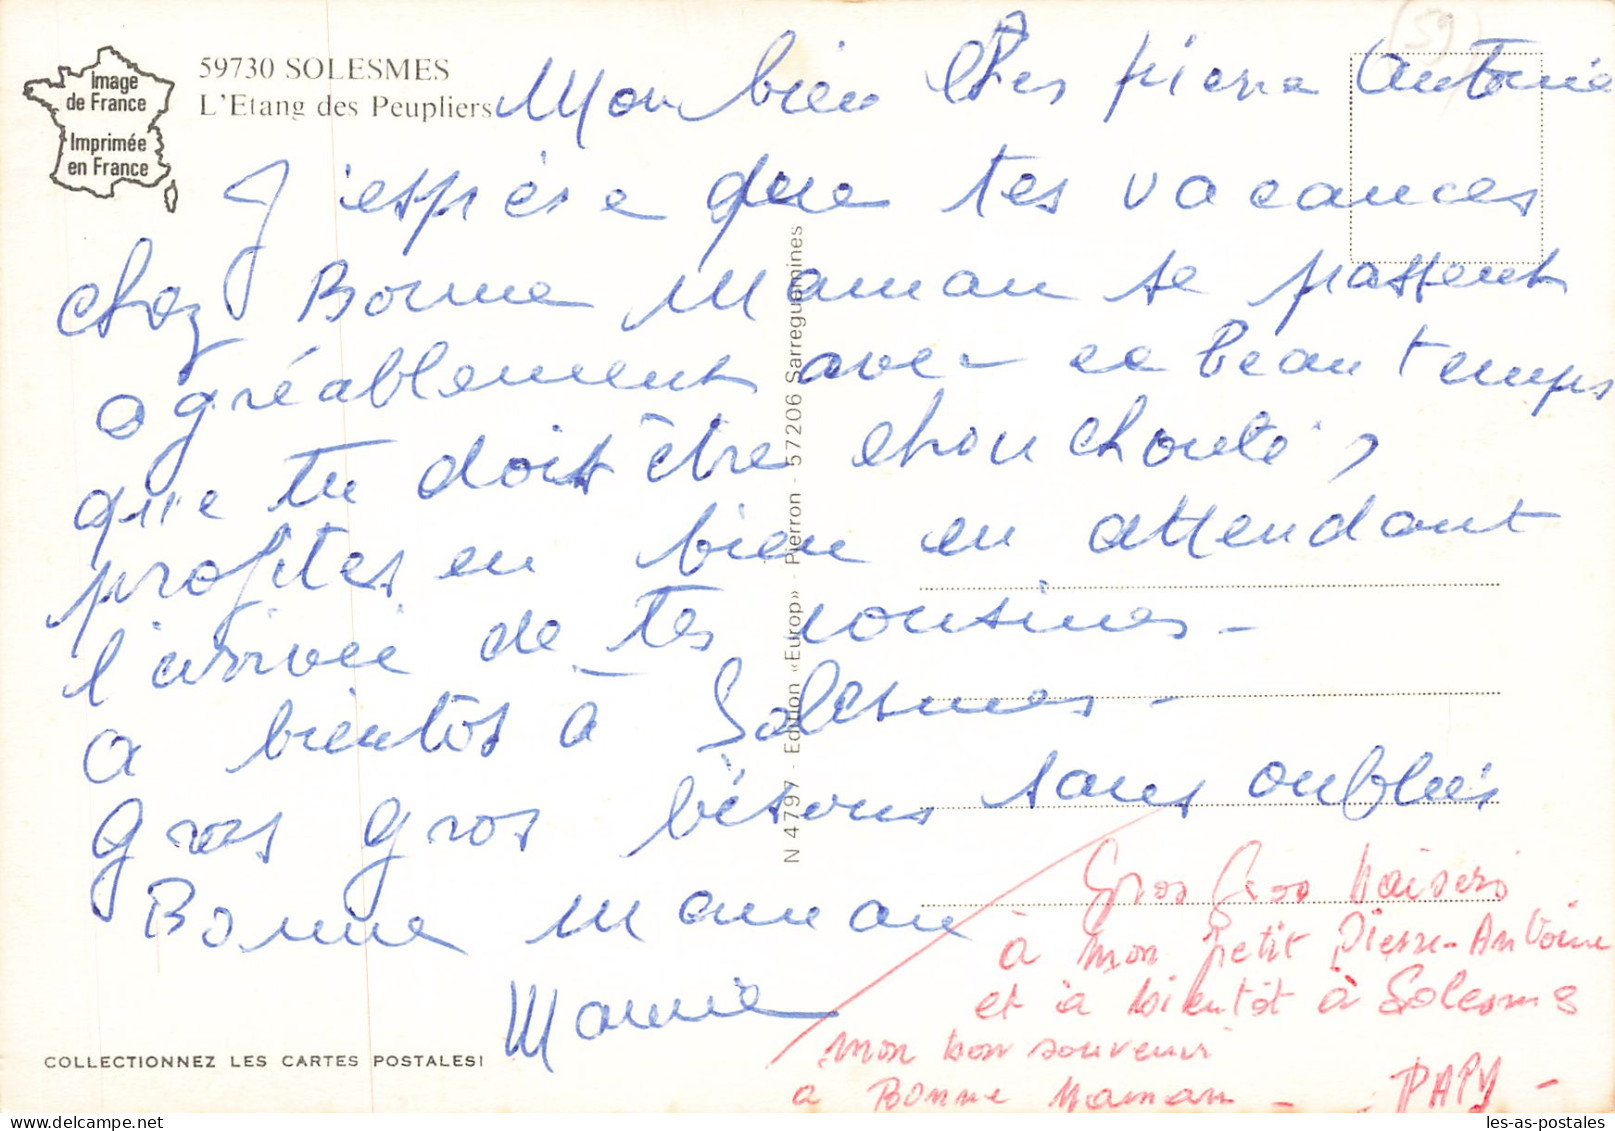 Image
de France
Imprimée
en France
59730 SOLESMES
L'Etang des Peupliers
59
Mon bien cher pierre Antoine
J'espére que tes vacances
chez Bonne Maman se passent
agréablement avec ce beau temps
que tu dois être chouchouté,
profites en bien en attendant
l'arrivée de tes cousines -
a bientôt à Solesmes -
Gros gros bisous sans oublier
Bonne maman
Mamie
Gros Gros baisers
à mon petit Pierre-Antoine
et à bientôt à Solesmes
mon bon souvenir
a Bonne Maman - PAPY -
N 4797 - Edition «Europ» - Pierron - 57206 Sarreguemines
COLLECTIONNEZ LES CARTES POSTALES!
les-as-postales.com